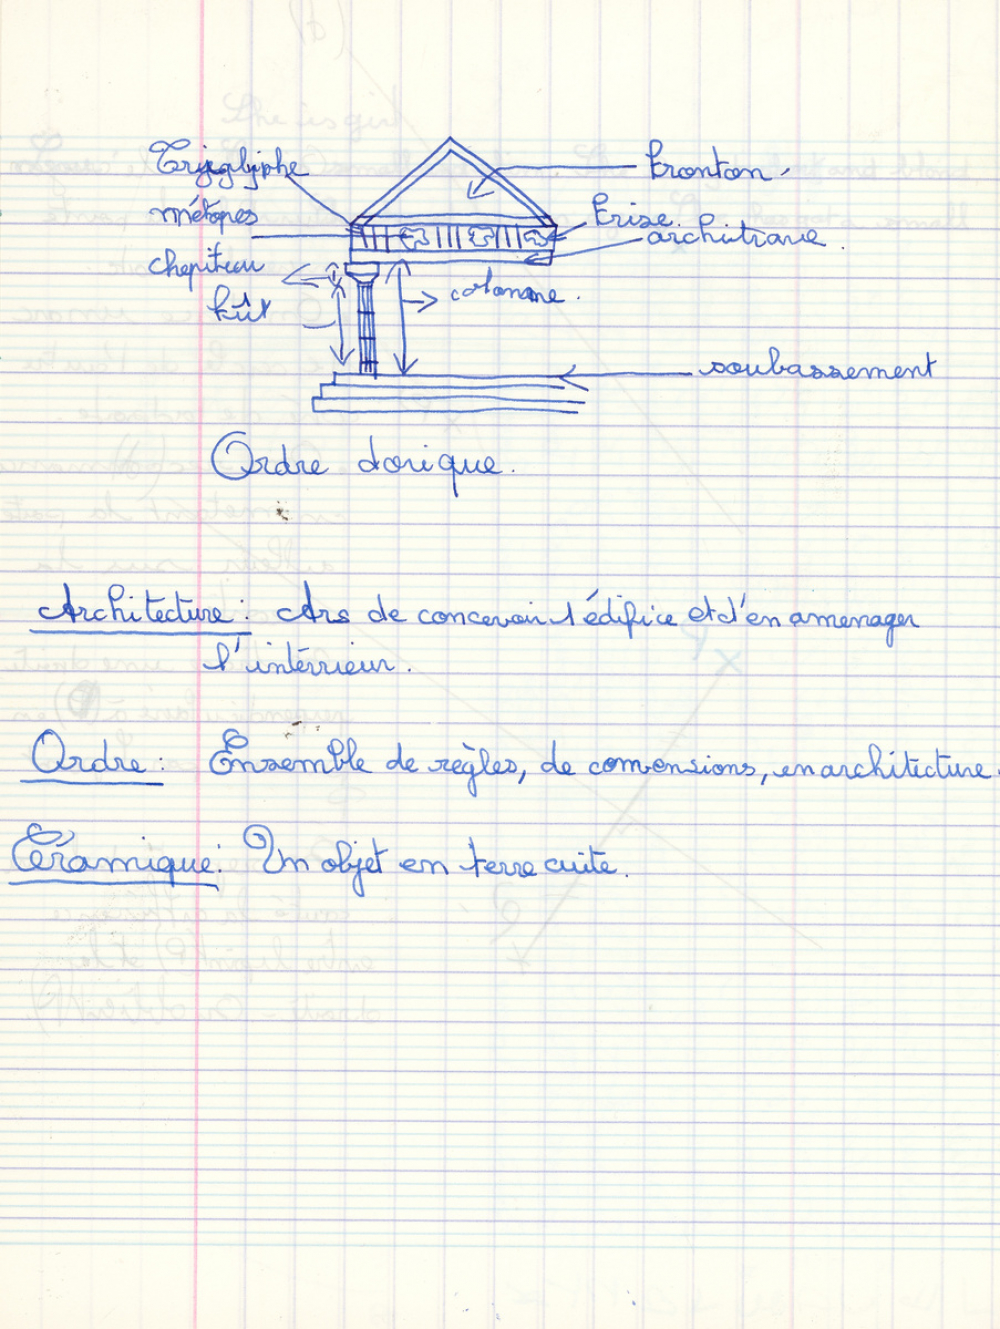 Tryglyphe
fronton
métopes
frise
architrave.
chapiteau
fût
colonne.
soubassement
Ordre dorique.
Architecture : Ars de concevoir l'édifice et d'en amenager
l'intérrieur.
Ordre : Ensemble de règles, de convensions, en architecture.
Céramique : Un objet en terre cuite.